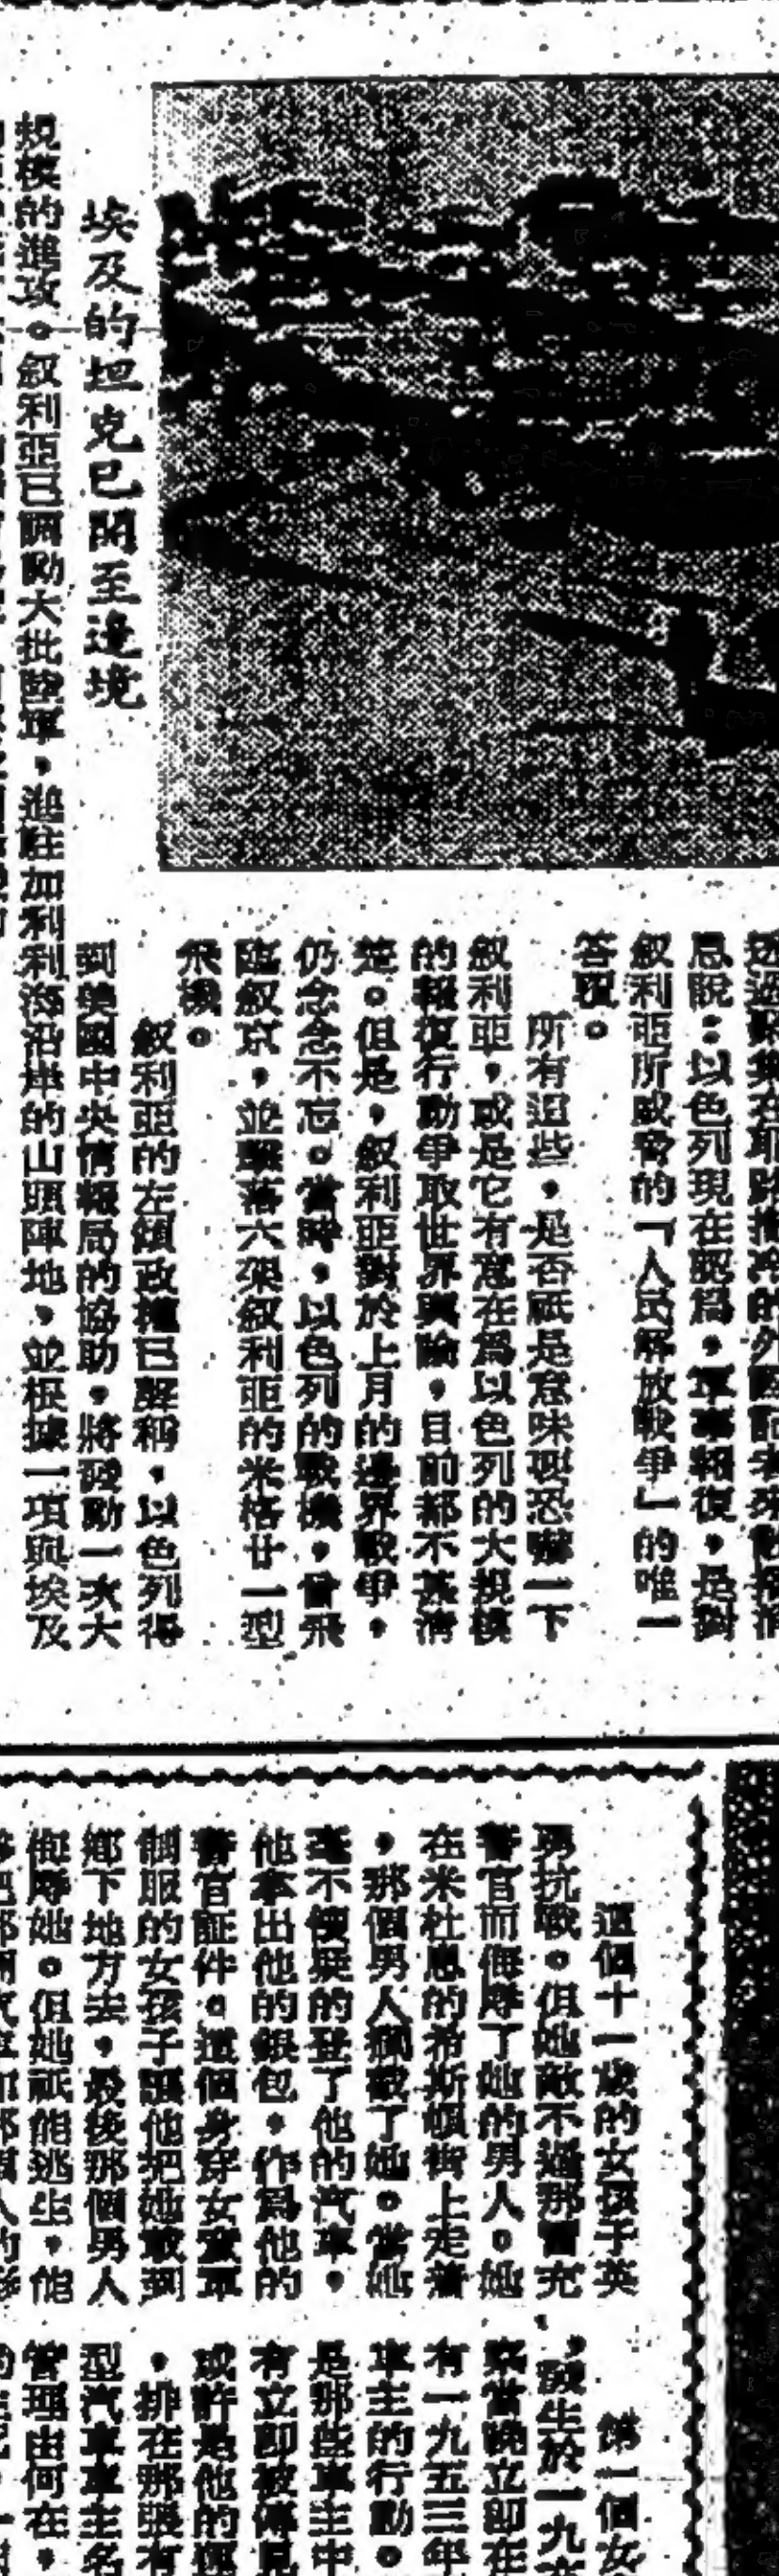 息說：以色列現在認爲，軍事報復，是對
叙利亞所威脅的「人民解放戰爭」的唯一
答覆。
所有這些，是否祇是意味要恐嚇一下
叙利亞，或是它有意在爲以色列的大規模
的報復行動爭取世界輿論，目前都不甚清
楚。但是，叙利亞對於上月的邊界戰爭，
仍念念不忘。當時，以色列的戰機，曾飛
臨叙京，並擊落六架叙利亞的米格廿一型
飛機。
叙利亞的左傾政權已聲稱，以色列得
到美國中央情報局的協助，將發動一次大
埃及的坦克已開至邊境
規模的進攻。叙利亞已調動大批陸軍，進駐加利利海沿岸的山頭陣地，並根據一項與埃及
這個十一歲的女孩子英
勇抗戰。但她敵不過那冒充
警官而侮辱了她的男人。她
在米杜息的希斯頓街上走着
，那個男人攔截了她。當她
毫不懷疑的登了他的汽車，
他拿出他的銀包，作爲他的
警官証件。這個身穿女童軍
制服的女孩子讓他把她載到
鄉下地方去，最後那個男人
侮辱她。但她祇能逃生，他
第一個女
，發生於一九
當晚立即在
有一九五三年
車主的行動。
是那些車主中
有立即被傳見
或許是他的運
，排在那張有
型汽車車主名
管理由何在，